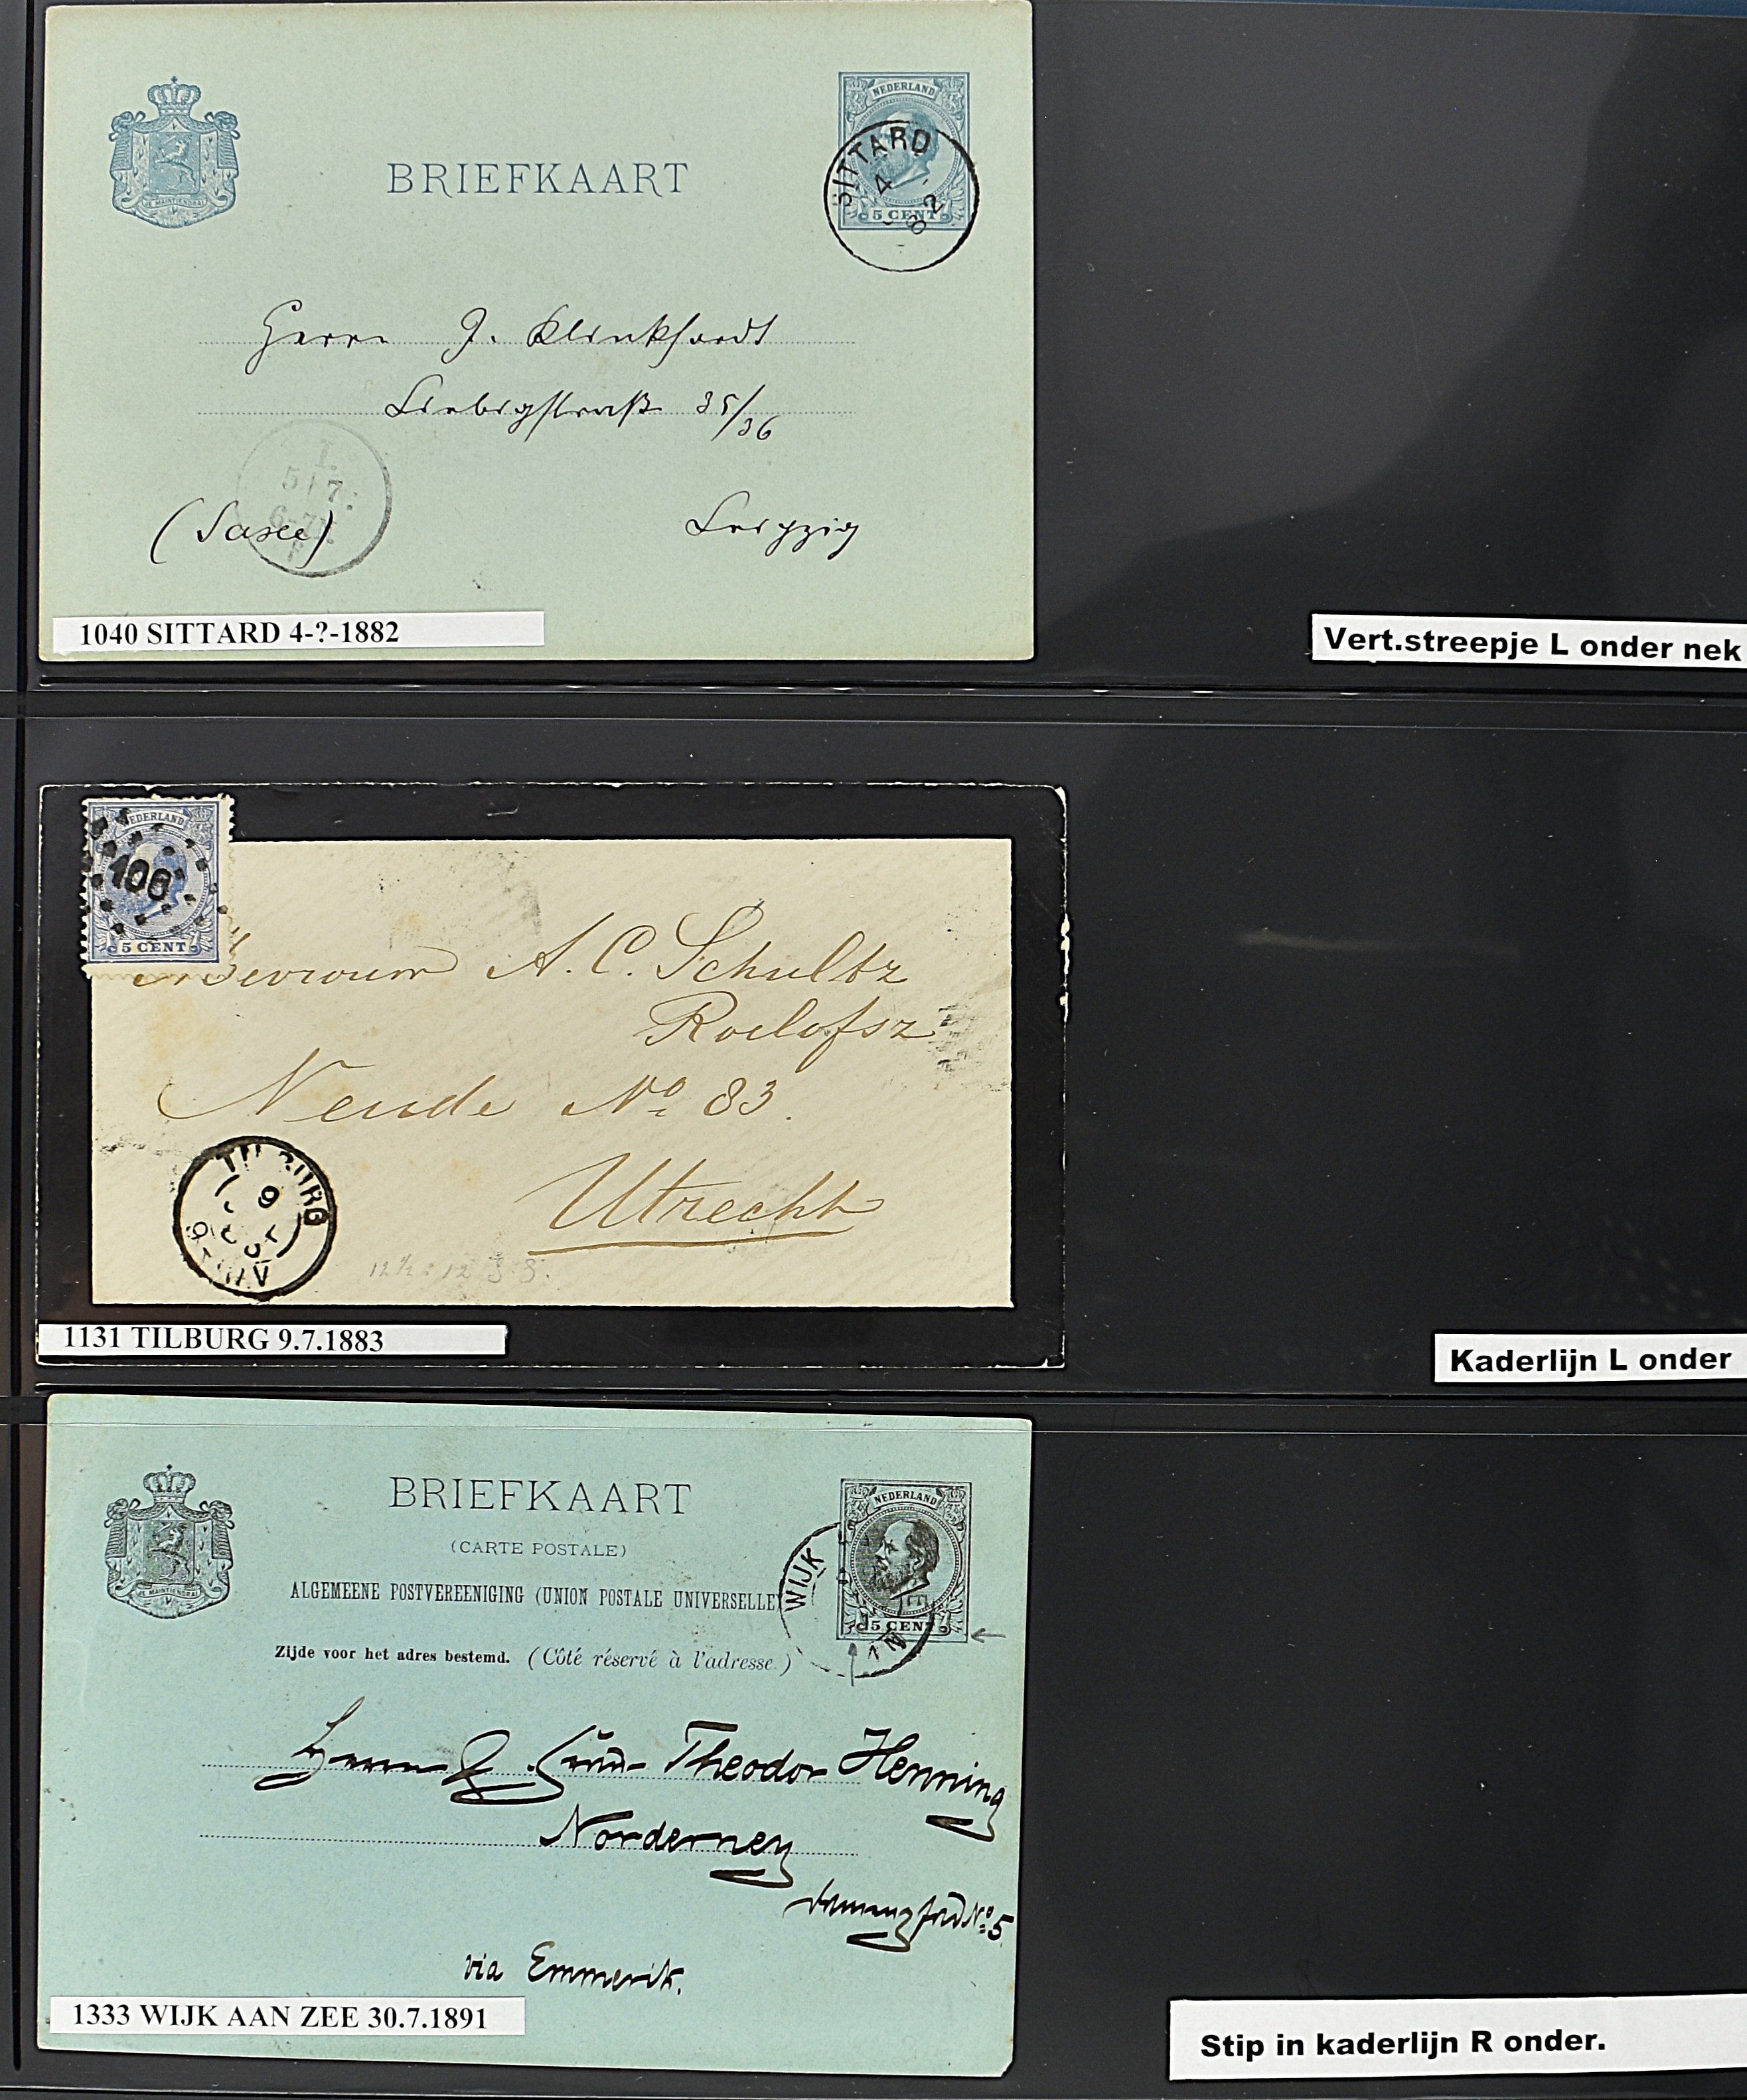 NEDERLAND
SITTARD
4
82
5 CENT
JE MAINTIENDRAI
BRIEFKAART
Herrn J. Klinkhardt
Liebigstraße 35/36
5 7
6-7
(Saxe) Leipzig
1040 SITTARD 4-?-1882
Vert.streepje L onder nek
NEDERLAND
106
5 CENT
Mevrouw A. C. Schultz
Roelofsz
Neude No. 83.
Utrecht
TILBURG
9
12½ : 12
1131 TILBURG 9.7.1883
Kaderlijn L onder
JE MAINTIENDRAI
BRIEFKAART
(CARTE POSTALE)
ALGEMEENE POSTVEREENIGING (UNION POSTALE UNIVERSELLE)
Zijde voor het adres bestemd. (Côté réservé à l'adresse.)
NEDERLAND
5 CENT
WIJK AAN ZEE
Theodor Henning
Norderney
No. 5
via Emmerik.
1333 WIJK AAN ZEE 30.7.1891
Stip in kaderlijn R onder.